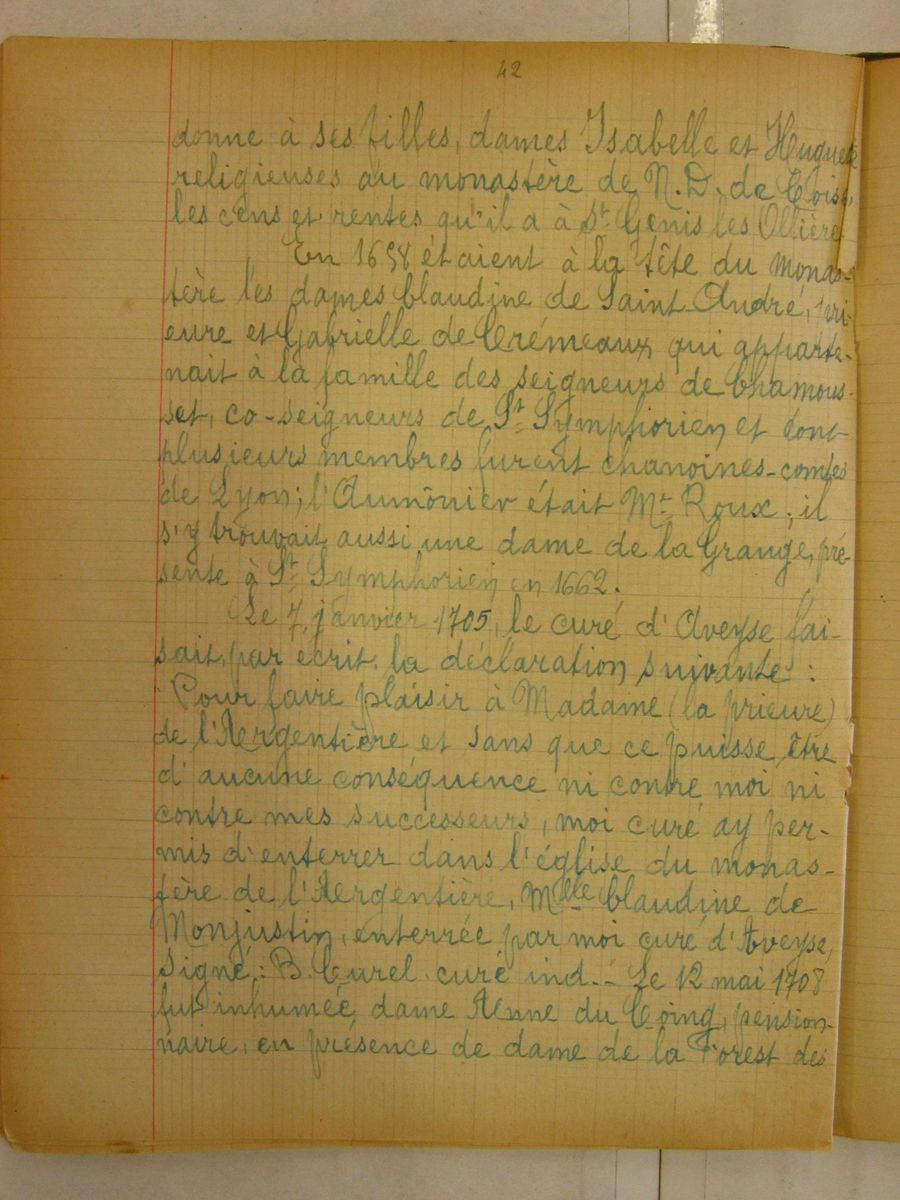 42
donne à ses filles, dames Isabelle et Hugues
religieuses au monastère de N.D. de Coise,
les cens et rentes qu'il a à St Genis les Ollière
En 1658 étaient à la tête du monas-
tère les dames Claudine de Saint-André, pri-
eure et Gabrielle de Crémeaux qui apparte-
nait à la famille des seigneurs de Chamous-
set, co-seigneurs de St Symphorien et dont
plusieurs membres furent chanoines-comtes
de Lyon; l'Aumônier était Mr Roux; il
s'y trouvait aussi une dame de la Grange, pré-
sente à St Symphorien en 1662.
Le 7 janvier 1705, le curé d'Aveyse fai-
sait par écrit la déclaration suivante :
"Pour faire plaisir à Madame (la prieure)
de l'Aergentière et sans que ce puisse être
d'aucune conséquence ni contre moi ni
contre mes successeurs, moi curé ay per-
mis d'enterrer dans l'église du monas-
tère de l'Aergentière, Mlle Claudine de
Monjustin, enterrée par moi curé d'Aveyse,
signé : B. Curel curé ind. - Le 12 mai 1708
fut inhumée dame Aenne du Coing, pension-
naire, en présence de dame de la Forest des